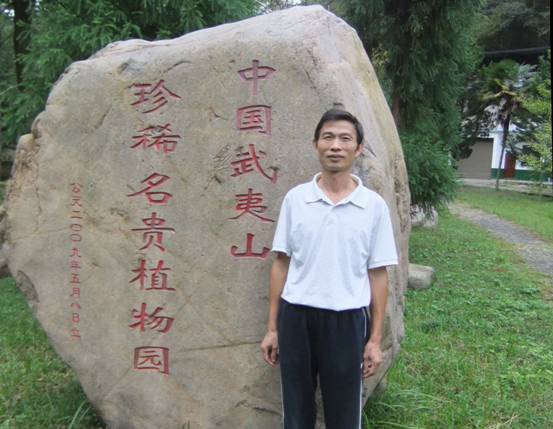 中国武夷山
珍稀名贵植物园
公元二〇〇九年五月八日立